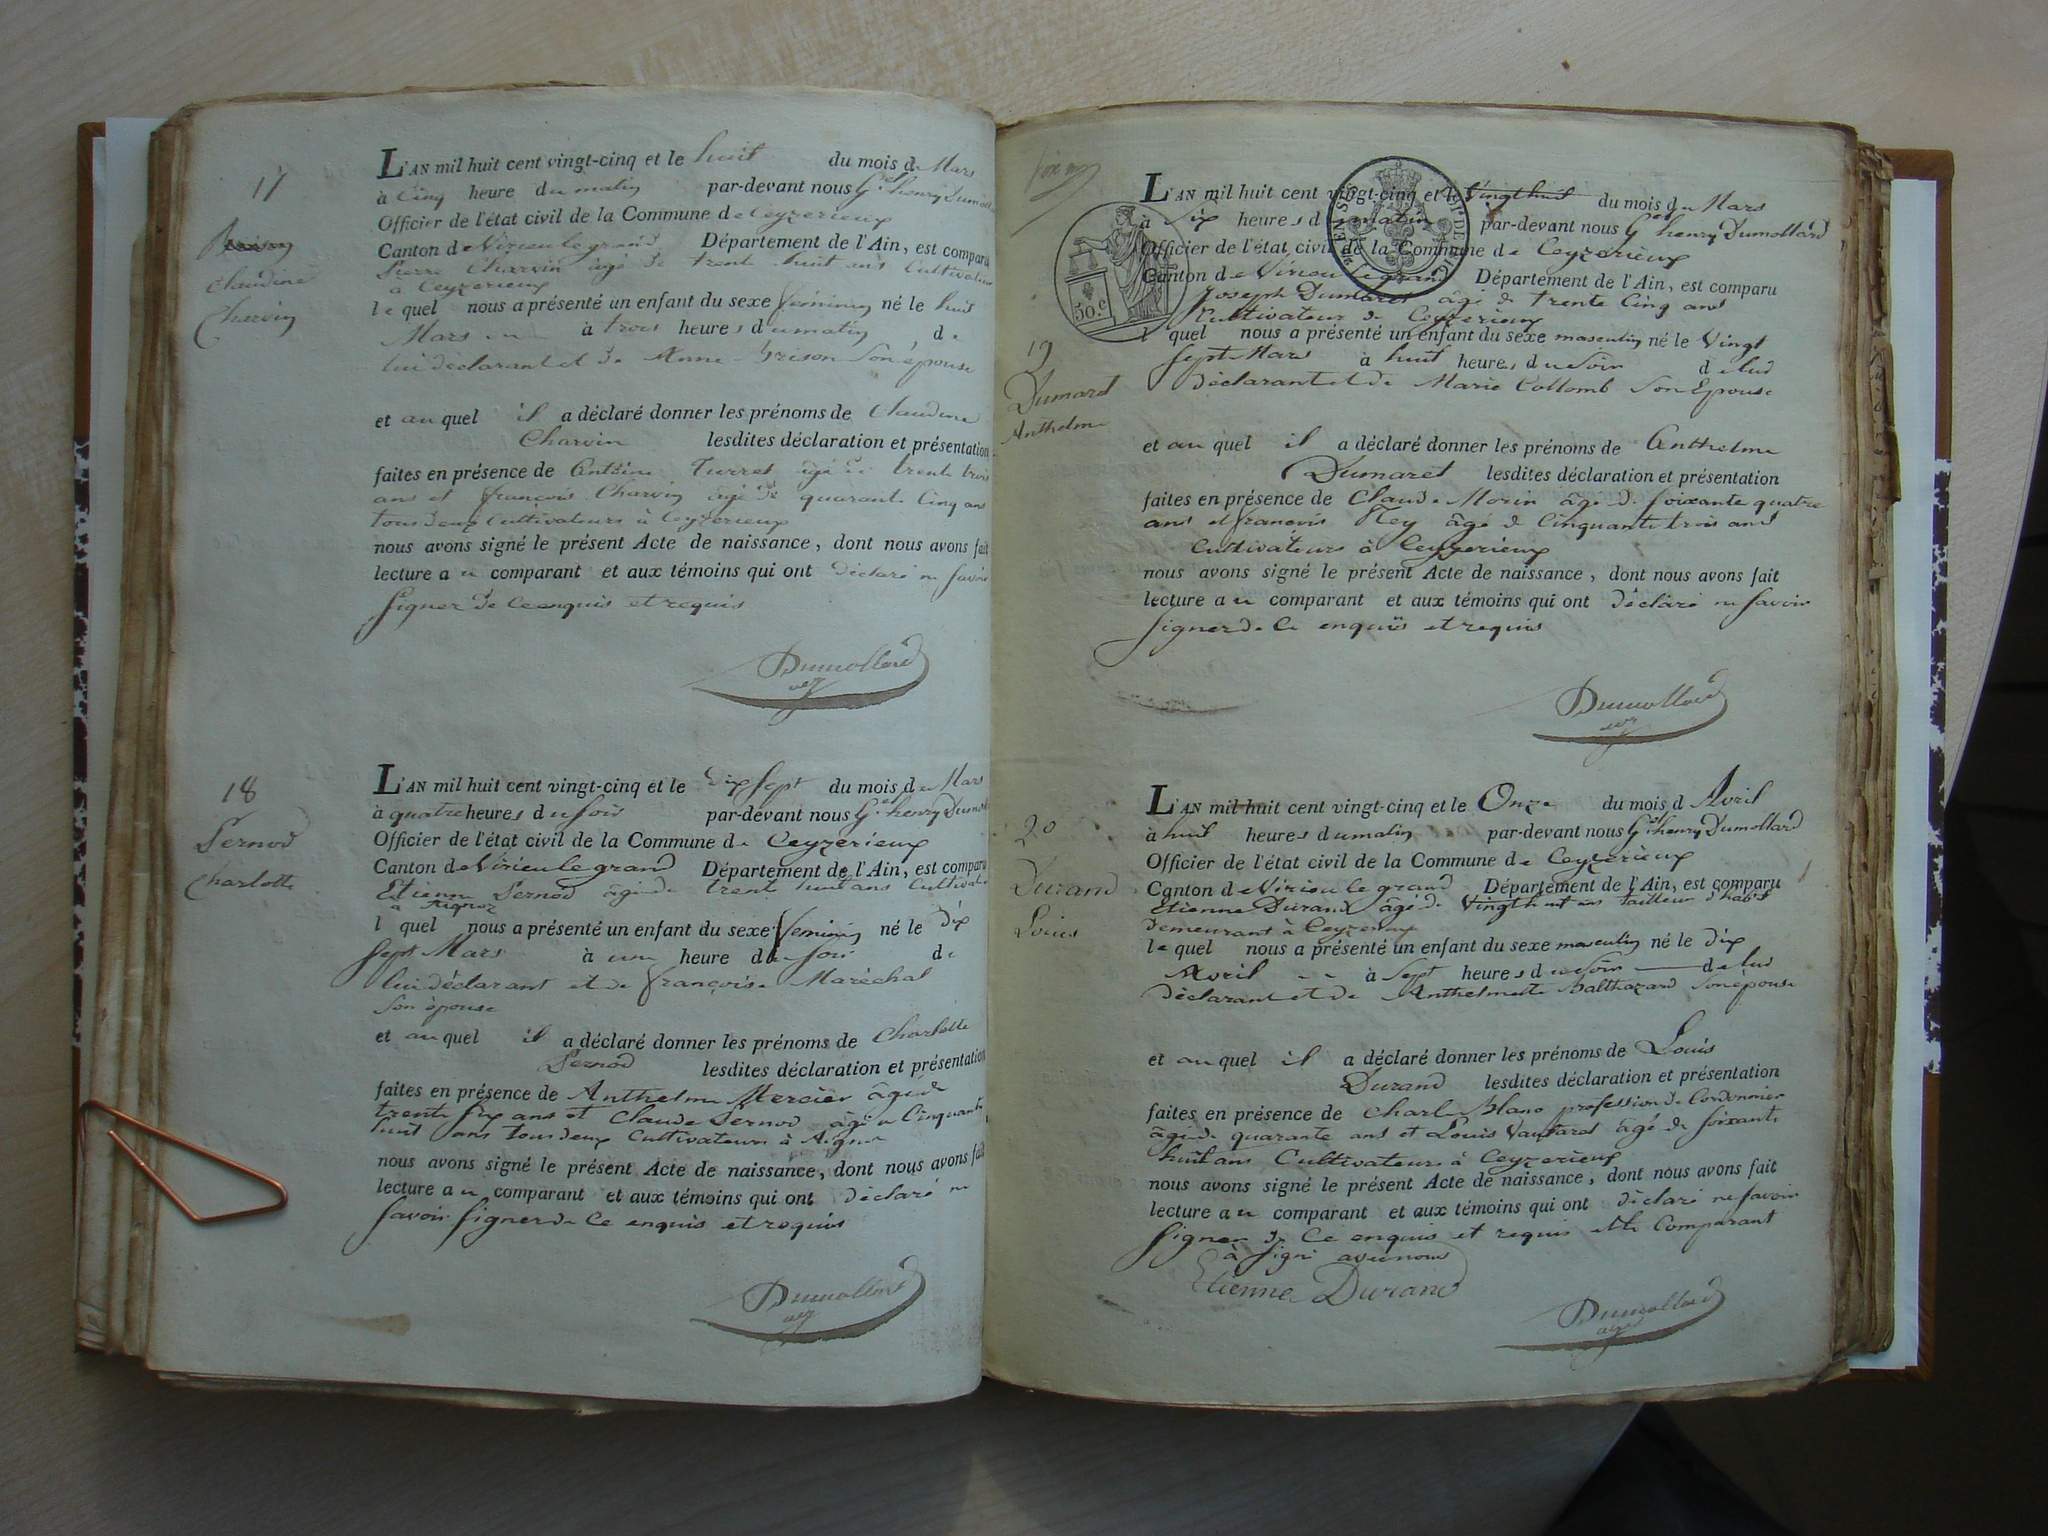 17
Claudine
Charvin
L'AN mil huit cent vingt-cinq et le huit du mois de Mars
à Cinq heure du matin par-devant nous Gel henry Dumollard
Officier de l'état civil de la Commune de Ceyzerieux
Canton de Virieu le grand Département de l'Ain, est comparu
Pierre Charvin âgé de trente huit ans Cultivateur
à Ceyzerieux
le quel nous a présenté un enfant du sexe féminin né le huit
Mars à trois heures du matin de
lui déclarant et de Anne Brison Son épouse
et au quel il a déclaré donner les prénoms de Claudine
Charvin lesdites déclaration et présentation
faites en présence de Antoine Turrel âgé de trente trois
ans et françois Charvin âgé de quarante Cinq ans
tous deux Cultivateurs à Ceyzerieux
nous avons signé le présent Acte de naissance, dont nous avons fait
lecture au comparant et aux témoins qui ont déclaré ne savoir
signer de ce enquis et requis
Dumollard
18
Pernod
Charlotte
L'AN mil huit cent vingt-cinq et le Dix sept du mois de Mars
à quatre heures du soir par-devant nous Gel henry Dumollard
Officier de l'état civil de la Commune de Ceyzerieux
Canton de Virieu le grand Département de l'Ain, est comparu
Etienne Pernod âgé de trente huit ans Cultivateur
à Aignoz
l quel nous a présenté un enfant du sexe féminin né le dix
Sept Mars à une heure du soir de
lui déclarant et de françoise Maréchal
Son épouse
et au quel il a déclaré donner les prénoms de Charlotte
Pernod lesdites déclaration et présentation
faites en présence de Anthelme Mercier âgé de
trente six ans et Claude Pernod âgé de Cinquante
huit ans tous deux Cultivateurs à Aignoz
nous avons signé le présent Acte de naissance, dont nous avons fait
lecture au comparant et aux témoins qui ont déclaré ne
savoir signer de ce enquis et requis
Dumollard
L'AN mil huit cent vingt-cinq et le Vingt huit du mois du Mars
à Six heures du matin par-devant nous Gel henry Dumollard
Officier de l'état civil de la Commune de Ceyzerieux
Canton de Virieu le grand Département de l'Ain, est comparu
Joseph Dumaret âgé de trente Cinq ans
50.c
Cultivateur de Ceyzerieux
l quel nous a présenté un enfant du sexe masculin né le Vingt
19
Dumaret
Anthelme
Sept Mars à huit heures du soir de lui
déclarant et de Marie Collomb Son Epouse
et au quel il a déclaré donner les prénoms de Anthelme
Dumaret lesdites déclaration et présentation
faites en présence de Claude Morin âgé de soixante quatre
ans et francois Rey âgé de Cinquante trois ans
Cultivateurs à Ceyzerieux
nous avons signé le présent Acte de naissance, dont nous avons fait
lecture au comparant et aux témoins qui ont déclaré ne savoir
signer de ce enquis et requis
Dumollard
20
Durand
Louis
L'AN mil huit cent vingt-cinq et le Onze du mois d Avril
à huit heures du matin par-devant nous Gel henry Dumollard
Officier de l'état civil de la Commune de Ceyzerieux
Canton de Virieu le grand Département de l'Ain, est comparu
Etienne Durand âgé de Vingt huit ans tailleur d'habts
demeurant à Ceyzerieux
le quel nous a présenté un enfant du sexe masculin né le dix
Avril à Sept heures du soir de lui
déclarant et de Anthelmette Balthazard Son épouse
et au quel il a déclaré donner les prénoms de Louis
Durand lesdites déclaration et présentation
faites en présence de Charle Blanc profession de Cordonnier
âgé de quarante ans et Louis Vautaret âgé de soixante
huit ans Cultivateurs à Ceyzerieux
nous avons signé le présent Acte de naissance, dont nous avons fait
lecture au comparant et aux témoins qui ont déclaré ne savoir
signer de ce enquis et requis et le Comparant
à signé avec nous
Etienne Durand
Dumollard